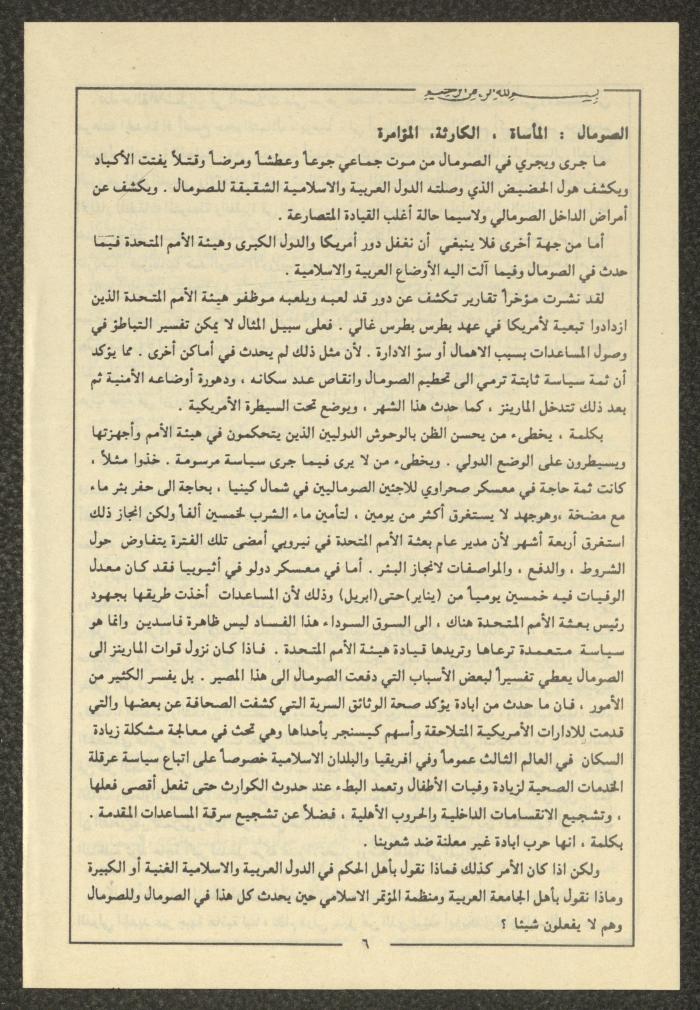 بسم الله الرحمن الرحيم
الصومال : المأساة ، الكارثة، المؤامرة
ما جرى ويجري في الصومال من موت جماعي جوعاً وعطشاً ومرضاً وقتلاً يفتت الأكباد
ويكشف هول الحضيض الذي وصلته الدول العربية والاسلامية الشقيقة للصومال . ويكشف عن
أمراض الداخل الصومالي ولاسيما حالة أغلب القيادة المتصارعة .
أما من جهة أخرى فلا ينبغي أن نغفل دور أمريكا والدول الكبرى وهيئة الأمم المتحدة فيَمَا
حدث في الصومال وفيما آلت اليه الأوضاع العربية والاسلامية .
لقد نشرت مؤخراً تقارير تكشف عن دور قد لعبه ويلعبه موظفو هيئة الأمم المتحدة الذين
ازدادوا تبعية لأمريكا في عهد بطرس بطرس غالي . فعلى سبيل المثال لا يمكن تفسير التباطؤ في
وصول المساعدات بسبب الاهمال أو سؤ الادارة . لأن مثل ذلك لم يحدث في أماكن أخرى . مما يؤكد
أن ثمة سياسة ثابتة ترمي الى تحطيم الصومال وانقاص عدد سكانه ، ودهورة أوضاعه الأمنية ثم
بعد ذلك تتدخل المارينز ، كما حدث هذا الشهر ، ويوضع تحت السيطرة الأمريكية .
بكلمة ، يخطىء من يحسن الظن بالوحوش الدوليين الذين يتحكمون في هيئة الأمم وأجهزتها
ويسيطرون على الوضع الدولي . ويخطىء من لا يرى فيما جرى سياسة مرسومة . خذوا مثلاً ،
كانت ثمة حاجة في معسكر صحراوي للاجئين الصوماليين في شمال كينيا ، بحاجة الى حفر بئر ماء
مع مضخة ،وهوجهد لا يستغرق أكثر من يومين ، لتأمين ماء الشرب لخمسين ألفاً ولكن انجاز ذلك
استغرق أربعة أشهر لأن مدير عام بعثة الأمم المتحدة في نيروبي أمضى تلك الفترة يتفاوض حول
الشروط ، والدفع ، والمواصفات لانجاز البئر . أما في معسكر دولو في أثيوبيا فقد كان معدل
الوفيات فيه خمسين يومياً من (يناير)حتى(ابريل) وذلك لأن المساعدات أخذت طريقها بجهود
رئيس بعثة الأمم المتحدة هناك ، الى السوق السوداء هذا الفساد ليس ظاهرة فاسدين وانما هو
سياسة متعمدة ترعاها وتريدها قيادة هيئة الأمم المتحدة . فاذا كان نزول قوات المارينز الى
الصومال يعطي تفسيراً لبعض الأسباب التي دفعت الصومال الى هذا المصير . بل يفسر الكثير من
الأمور ، فان ما حدث من ابادة يؤكد صحة الوثائق السرية التي كشفت الصحافة عن بعضها والتي
قدمت للادارات الأمريكية المتلاحقة وأسهم كيسنجر بأحداها وهي تحث في معالجة مشكلة زيادة
السكان في العالم الثالث عموماً وفي افريقيا والبلدان الاسلامية خصوصاً على اتباع سياسة عرقلة
الخدمات الصحية لزيادة وفيات الأطفال وتعمد البطء عند حدوث الكوارث حتى تفعل أقصى فعلها
، وتشجيع الانقسامات الداخلية والحروب الأهلية ، فضلاً عن تشجيع سرقة المساعدات المقدمة .
بكلمة ، انها حرب ابادة غير معلنة ضد شعوبنا .
ولكن اذا كان الأمر كذلك فماذا نقول بأهل الحكم في الدول العربية والاسلامية الغنية أو الكبيرة
وماذا نقول بأهل الجامعة العربية ومنظمة المؤتمر الاسلامي حين يحدث كل هذا في الصومال وللصومال
وهم لا يفعلون شيئا ؟
٦